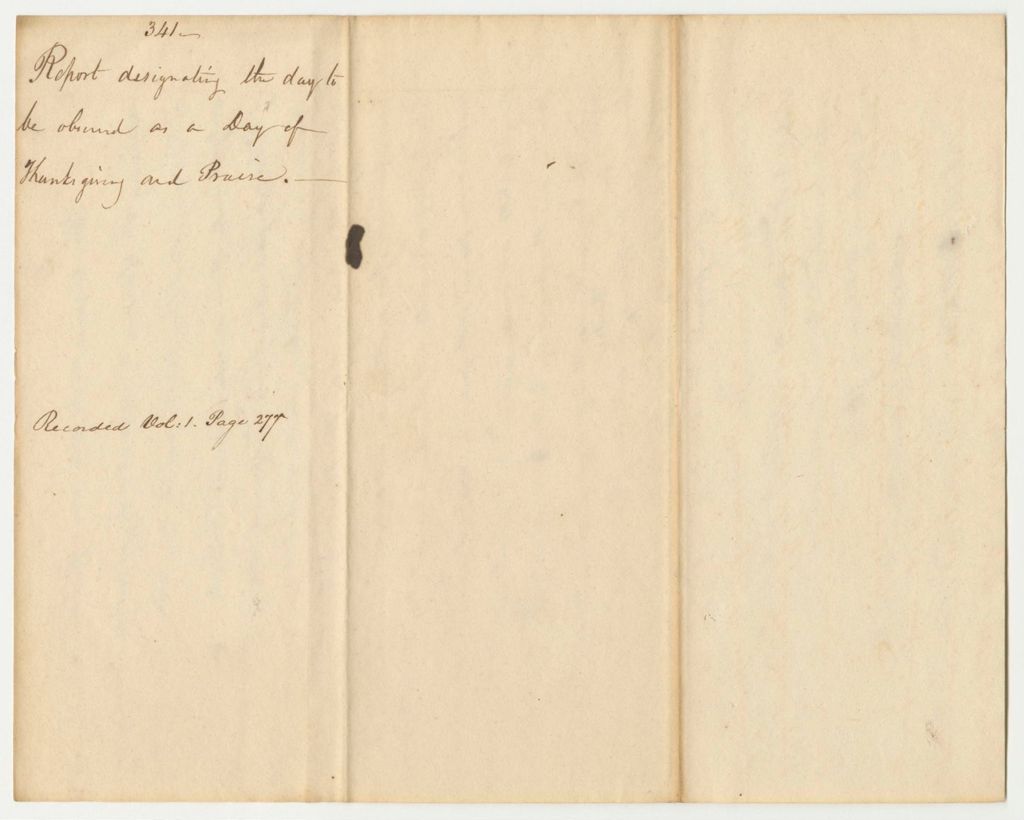 341—
Report designating the day to
be observed as a Day of
Thanksgiving and Praise.—
Recorded Vol: 1. Page 277